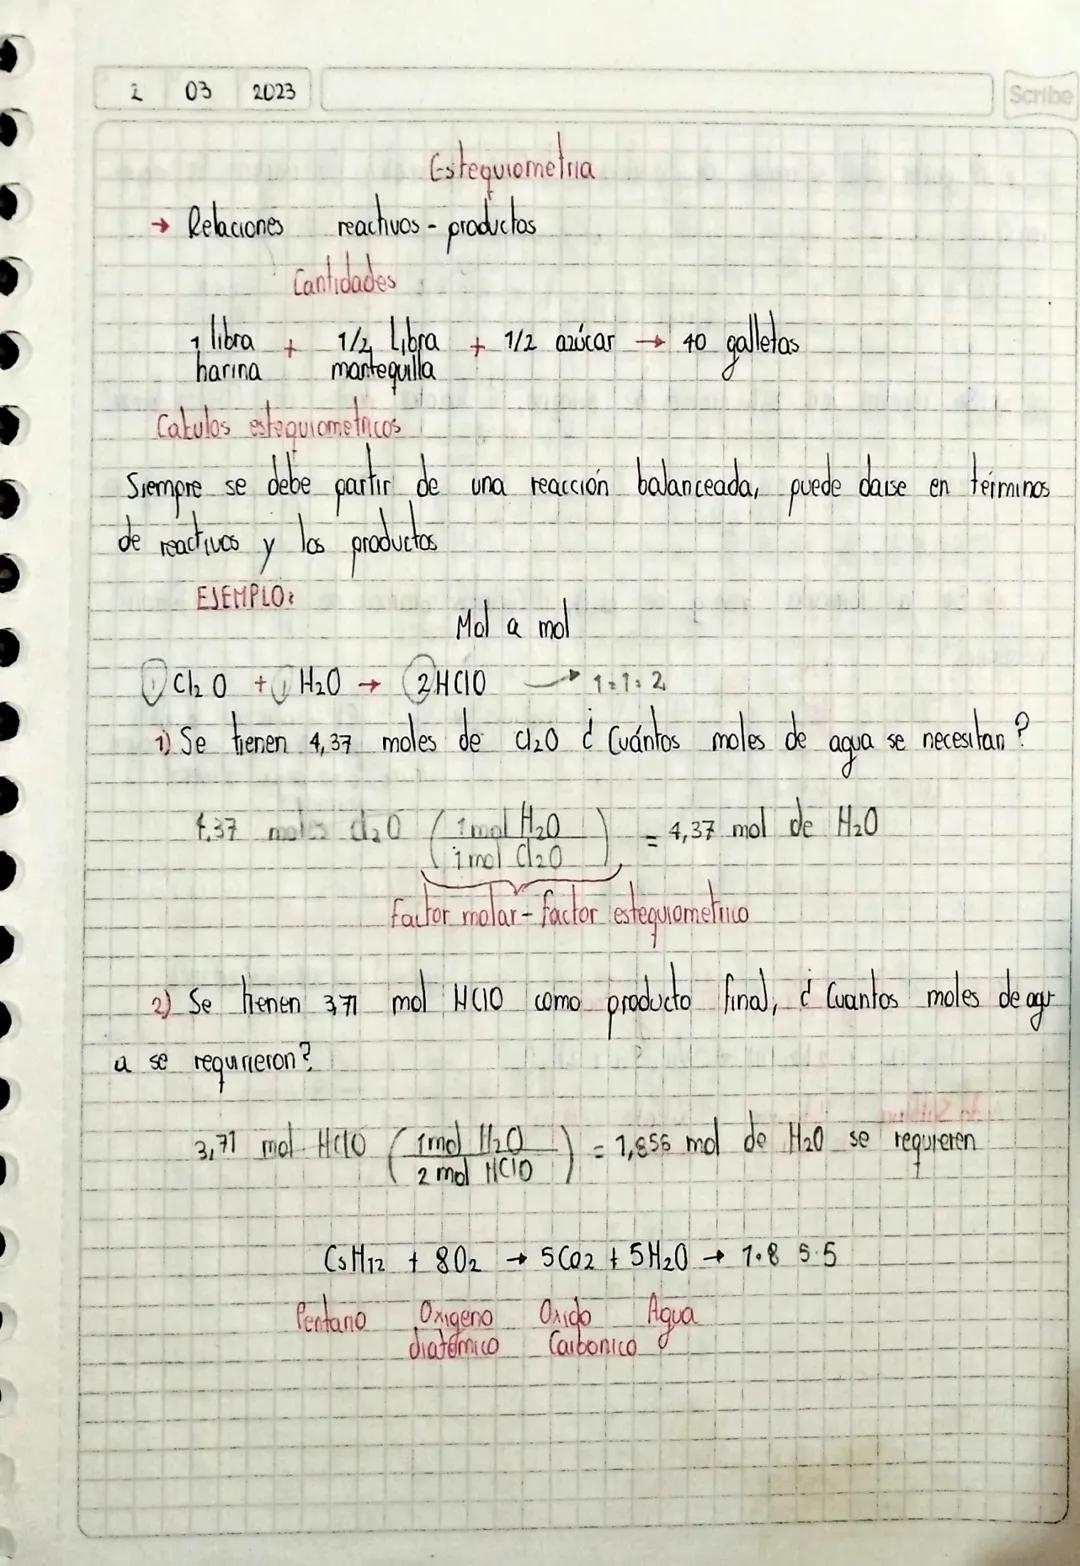 2 03 2023
Scribe
Estequiometria
→ Relaciones reactivos - productos
Cantidades
1 libra + 1/2 Libra + 1/2 azúcar → 40 galletas
harina mantequilla
Calculos estequiometricos
Siempre se debe partir de una reacción balanceada, puede darse en términos
de reactivos y los productos
EJEMPLO:
Mol a mol
1 Cl2O + 1 H2O → 2HClO → 1:1:2
1) Se tienen 4,37 moles de Cl2O ¿ Cuántos moles de agua se necesitan?
4,37 moles Cl2O (1 mol H2O / 1 mol Cl2O) = 4,37 mol de H2O
Factor molar - factor estequiometrico
2) Se tienen 3,71 mol HClO como producto final, ¿ Cuantos moles de agu
a se requirieron?
3,71 mol HClO (1 mol H2O / 2 mol HClO) = 1,856 mol de H2O se requieren
C5H12 + 8O2 → 5CO2 + 5H2O → 1.8 5.5
Pentano Oxigeno Oxido Agua
diatómico Carbonico